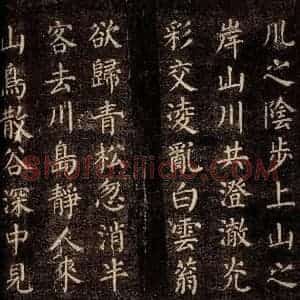 之陰步上山之
岸山川共澄澈光
彩交凌亂白雲翁
欲歸青松忽消半
客去川島靜人來
山鳥散谷深中見